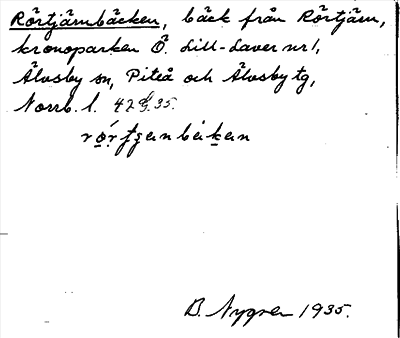 Rörtjärnbäcken, bäck från Rörtjärn,
kronoparken Ö. Lill-Laver nr 1,
Älvsby sn, Piteå och Älvsby tg,
Norrb. l. 42 35.
B. Nygren 1935.